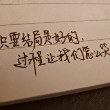 只要结局是好的,
过程让我们怎么哭